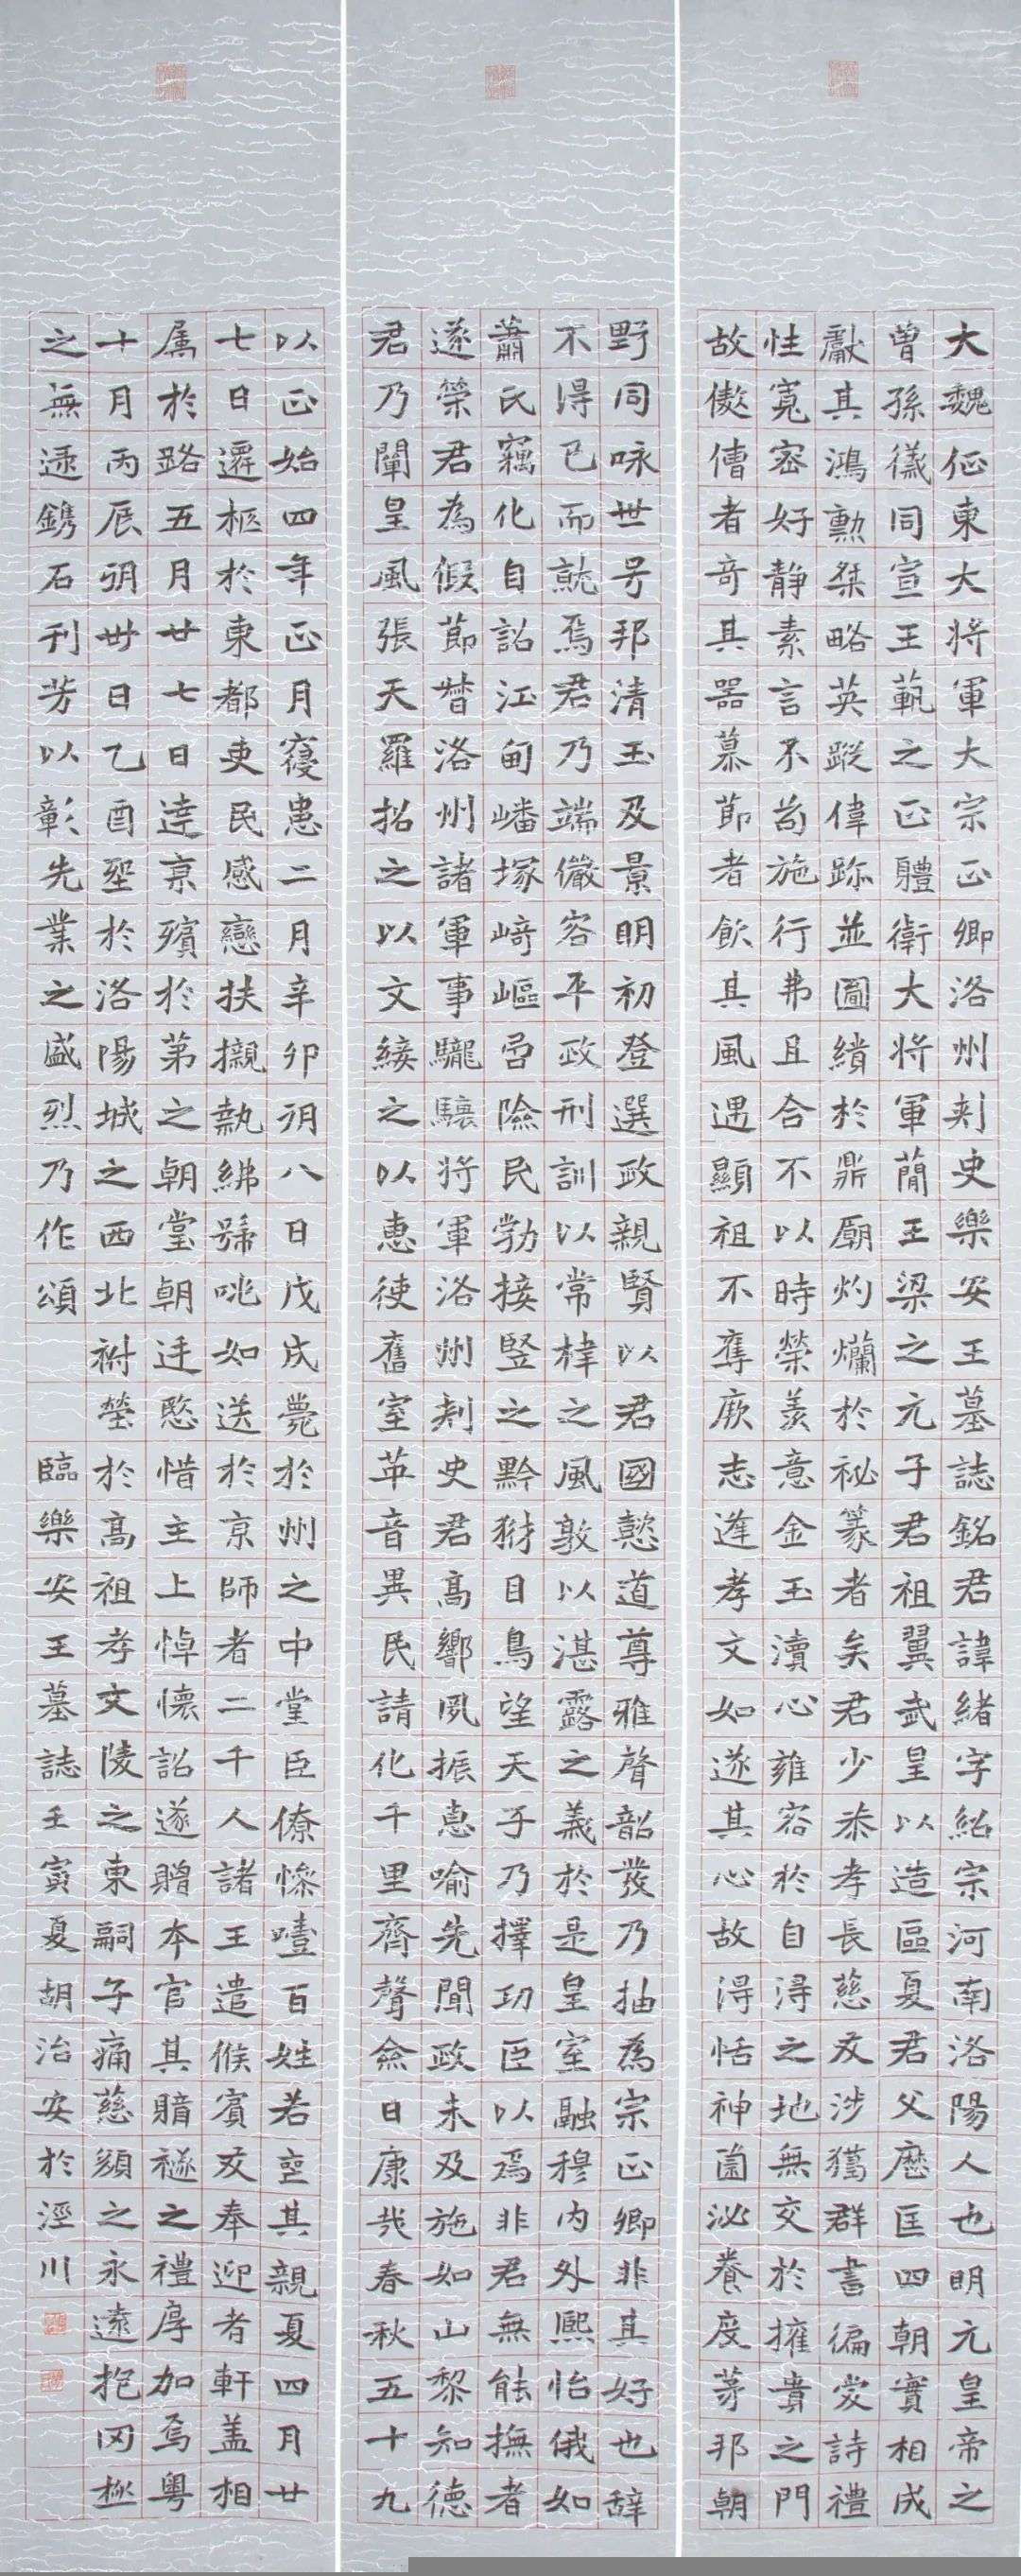 大魏征東大將軍大宗正卿洛州刺史樂安王墓誌銘君諱緒字紹宗河南洛陽人也明元皇帝之
曾孫儀同宣王範之正體衛大將軍簡王梁之元子君祖翼武皇以造區夏君父歷匡四朝實相成
獻其鴻勳桀略英蹤偉跡並圖績於鼎廟灼爛於祕篆者矣君少恭孝長慈友涉獵群書徧愛詩禮
性寬密好靜素言不苟施行弗且合不以時榮羨意金玉瀆心雍容於自得之地無交於擁貴之門
故傲僧者奇其器慕節者飲其風遇顯祖不奪厥志逢孝文如遂其心故得恬神園泌養度茅邦朝
野同咏世号邦清王及景明初登選政親賢以君國懿道尊雅聲韶發乃抽為宗正卿非其好也辭
不得已而就焉君乃端儼容平政刑訓以常棣之風敦以湛露之義於是皇室融穆內外熙怡俄如
蕭氏竊化自詔江甸嶓塚崎嶇嵒險民勃接豎之黔豺目鳥望天子乃擇功臣以焉非君無能撫者
遂榮君為假節督洛州諸軍事驪驤將軍洛州刺史君高響夙振惠喻先聞政未及施如山黎知德
君乃闡皇風張天羅招之以文綏之以惠使舊室革音異民請化千里齊聲僉曰康哉春秋五十九
以正始四年正月寢患二月辛卯朔八日戊戌薨於州之中堂臣僚慘噎百姓若喪其親夏四月廿
七日遷柩於東都吏民感戀扶櫬執紼號咷如送於京師者二千人諸王遣候賓友奉迎者軒盖相
属於路五月廿七日達京殯於第之朝堂朝廷愍惜主上悼懷詔遂贈本官其賵襚之禮厚加焉粤
十月丙辰朔卅日乙酉塟於洛陽城之西北祔塋於高祖孝文陵之東嗣子痛慈顏之永遠抱罔極
之無逯鐫石刊芳以彰先業之盛烈乃作頌
臨樂安王墓誌壬寅夏胡治安於涇川